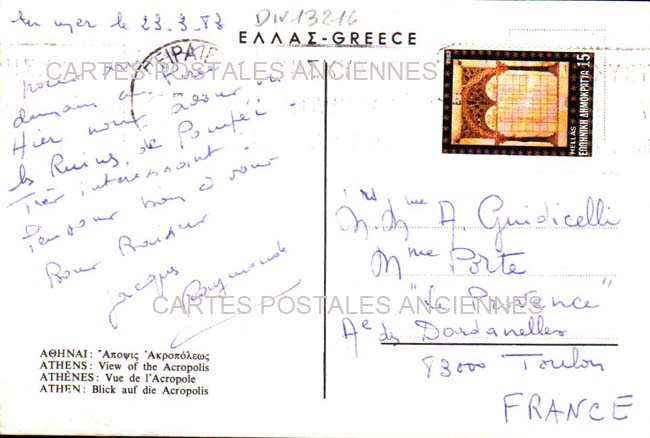 en mer le 23.3.83
DIV13216
ΕΛΛΑΣ-GREECE
CARTES POSTALES ANCIENNES
Hier nous avons vu
les Ruines de Pompéi -
Très intéressant -
Pensons bien à vous
Bons Baisers
Jacques Raymonde
ΠΕΙΡΑΙΕ
15
HELLAS
ΕΛΛΗΝΙΚΗ ΔΗΜΟΚΡΑΤΙΑ
Mrs Mme A. Guidicelli
Mme Porte
"Le Provence"
Ae des Dardanelles
83000 Toulon
FRANCE
CARTES POSTALES ANCIENNES
ΑΘΗΝΑΙ: Ἄποψις Ἀκροπόλεως
ATHENS: View of the Acropolis
ATHÈNES: Vue de l'Acropole
ATHEN: Blick auf die Acropolis